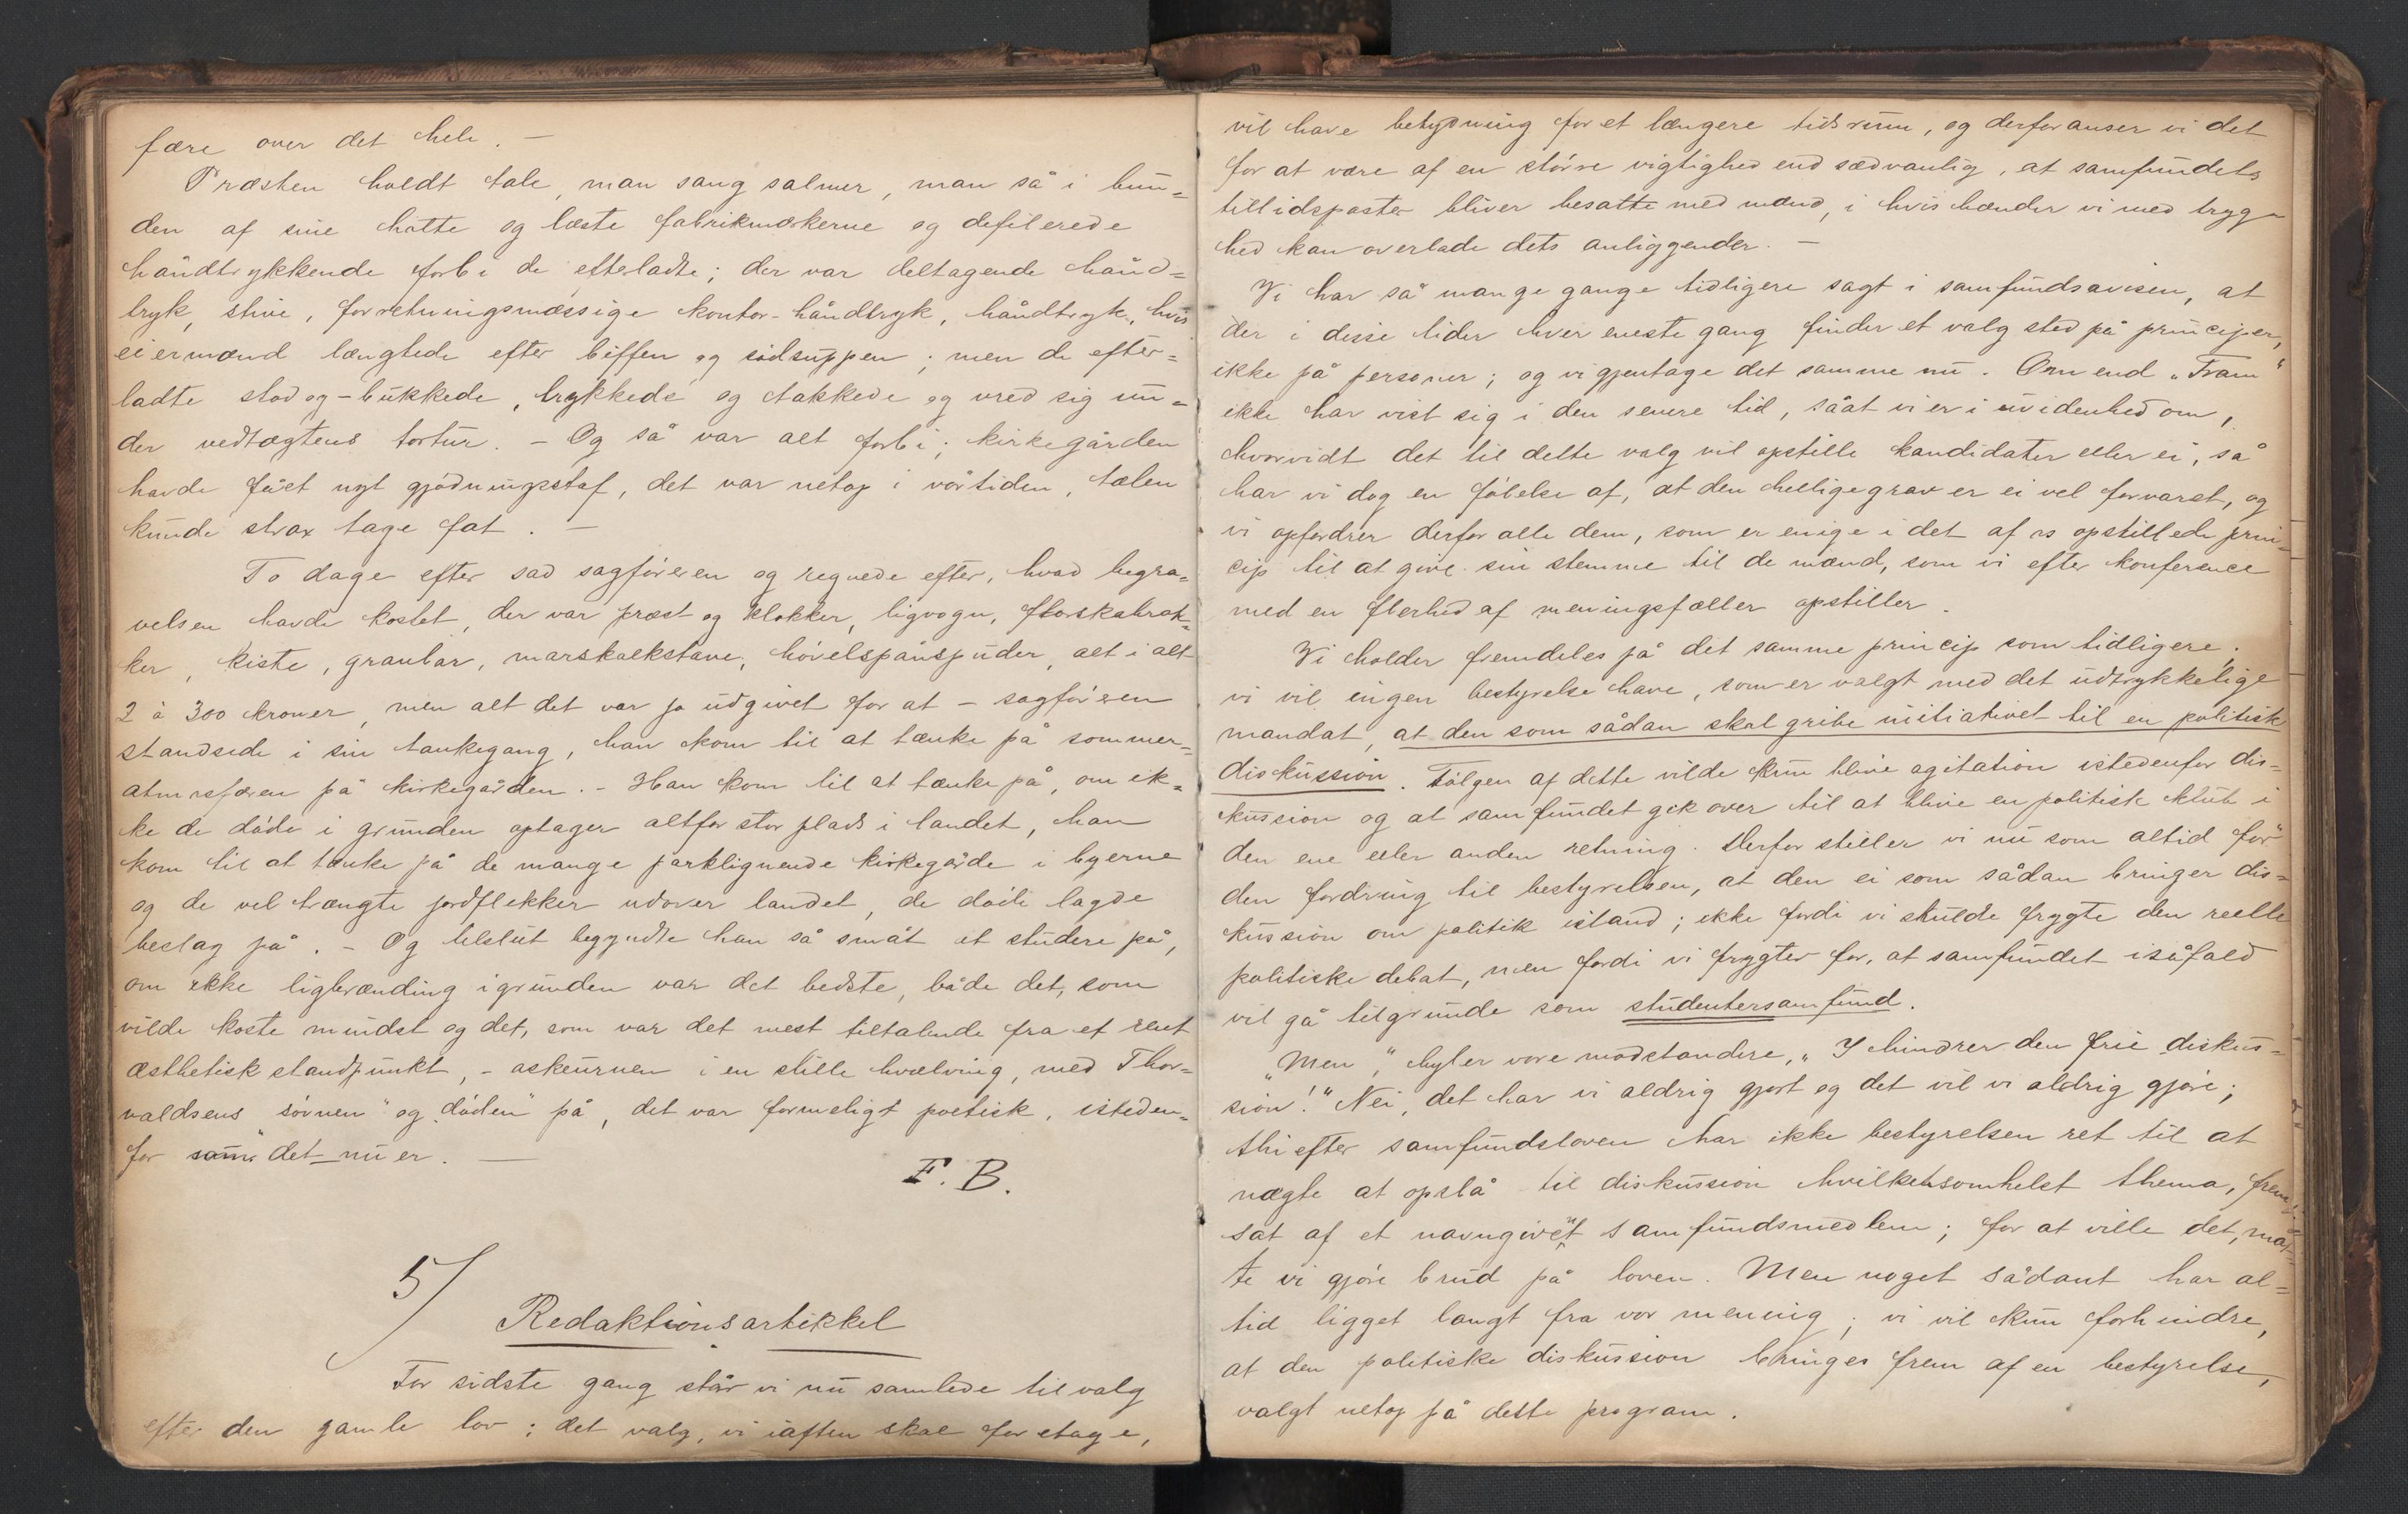 fære over det hele. —
Præsten holdt tale, man sang salmer, man så i bun=
den af sine hatte og læste fabrikmærkerne og defilerede
håndtrykkende forbi de efterladte; der var deltagende hånd=
tryk, stive, forretningsmæssige kontor-håndtryk, håndtryk, hvis
eiermænd længtede efter biffen og sødsuppen; men de efter=
ladte stod og — bukkede, trykkede og takkede og vred sig un=
der vedtægtens tortur. — Og så var alt forbi; kirkegården
havde fået nyt gjødningsstof, det var netop i vårtiden, tælen
kunde strax tage fat. —
To dage efter sad sagføreren og regnede efter, hvad begra=
velsen havde kostet, der var præst og klokker, ligvogn, florskabrak=
ker, kiste, granbar, marskalkstave, høvelspånspuder, alt i alt
2 à 300 kroner, men alt det var jo udgivet for at — sagføreren
standsede i sin tankegang, han kom til at tænke på sommer=
atmosfæren på kirkegården. — Han kom til at tænke på, om ik=
ke de døde i grunden optager altfor stor plads i landet, han
kom til at tænke på de mange parklignende kirkegårde i byerne
og de vel trængte jordflekker udover landet, de døde lagde
beslag på. — Og tilslut begyndte han så småt at studere på,
om ikke ligbrænding igrunden var det bedste, både det, som
vilde koste mindst og det, som var det mest tiltalende fra et rent
æsthetisk standpunkt, — askeurnen i en stille hvælving, med Thor=
valdsens „søvnen" og „døden" på, det var formeligt poetisk, isteden=
for som det nu er. —
F. B.
5/
Redaktionsartikkel
For sidste gang står vi nu samlede til valg
efter den gamle lov; det valg, vi iaften skal foretage,
vil have betydning for et længere tidsrum, og derfor anser vi det
for at være af en større vigtighed end sædvanlig, at samfundets
tillidsposter bliver besatte med mænd, i hvis hænder vi med tryg=
hed kan overlade dets anliggender. —
Vi har så mange gange tidligere sagt i samfundsavisen, at
der i disse tider hver eneste gang finder et valg sted på principer,
ikke på personer; og vi gjentage det samme nu. Om end „Fram"
ikke har vist sig i den senere tid, såat vi er i uvidenhed om,
hvorvidt det til dette valg vil opstille kandidater eller ei, så
har vi dog en følelse af, at den hellige grav er ei vel forvaret, og
vi opfordrer derfor alle dem, som er enige i det af os opstillede prin=
cip til at give sin stemme til de mænd, som vi efter konference
med en flerhed af meningsfæller opstiller.
Vi holder fremdeles på det samme princip som tidligere;
vi vil ingen bestyrelse have, som er valgt med det udtrykkelige
mandat, at den som sådan skal gribe initiativet til en politisk
diskussion. Følgen af dette vilde kun blive agitation istedenfor dis=
kussion og at samfundet gik over til at blive en politisk klub i
den ene eller anden retning. Derfor stiller vi nu som altid før
den fordring til bestyrelsen, at den ei som sådan bringer dis=
kussion om politik istand; ikke fordi vi skulde frygte den reelle
politiske debat, men fordi vi frygter for, at samfundet isåfald
vil gå tilgrunde som studentersamfund.
„Men", hyler vore modstandere, „I hindrer den frie diskus=
sion!" Nei, det har vi aldrig gjort og det vil vi aldrig gjøre;
thi efter samfundsloven har ikke bestyrelsen ret til at
nægte at opslå til diskussion hvilketsomhelst thema, frem=
sat af et navngivet samfundsmedlem; for at ville det, måt=
te vi gjøre brud på loven. Men noget sådant har al=
tid ligget langt fra vor mening; vi vil kun forhindre,
at den politiske diskussion bringes frem af en bestyrelse,
valgt netop på dette program.